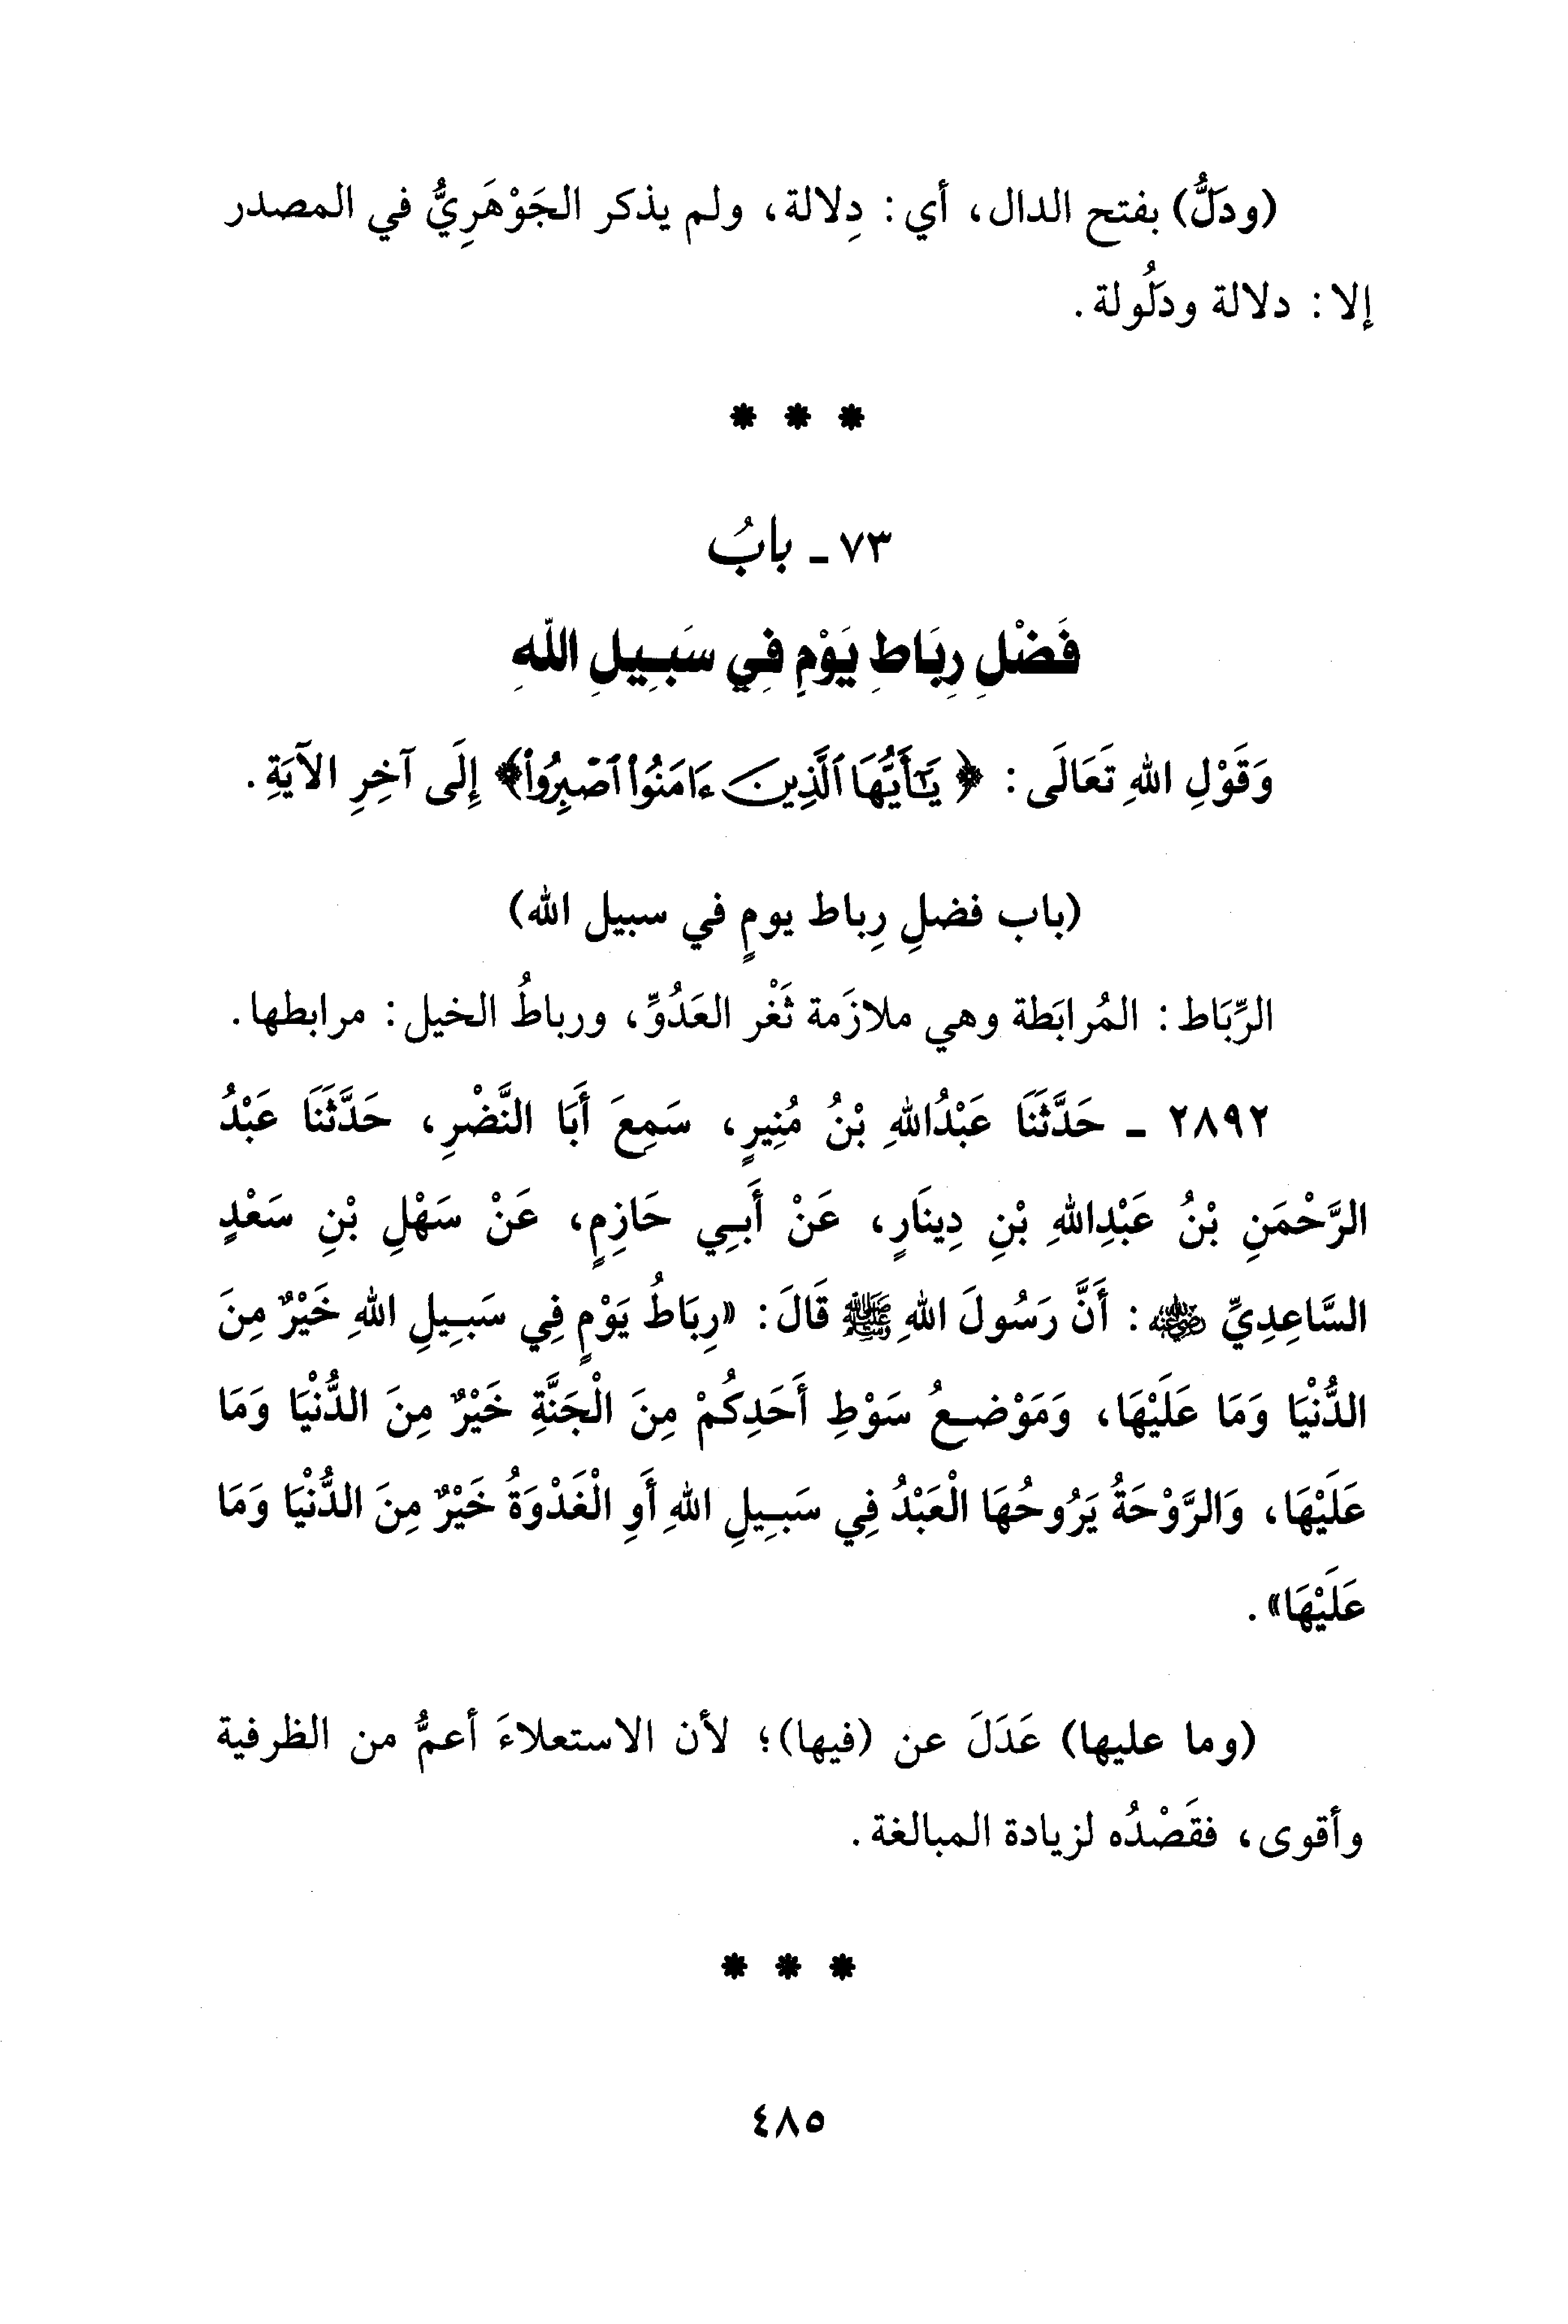 (ودَلُّ) بفتح الدال، أي: دِلالة، ولم يذكر الجَوْهَرِيُّ في المصدر
إلا: دلالة ودلُولة.
* * *
٧٣ - بابُ
فَضْلِ رِبَاطِ يَوْمٍ فِي سَبِيلِ اللهِ
وَقَوْلِ اللهِ تَعَالَى: ﴿يَٰٓأَيُّهَا ٱلَّذِينَ ءَامَنُوا۟ ٱصْبِرُوا۟﴾ إِلَى آخِرِ الآيَةِ.
(باب فضلِ رِباط يومٍ في سبيل الله)
الرِّبَاط: المُرابَطة وهي ملازَمة ثَغْر العَدُوِّ، ورباطُ الخيل: مرابطها.
٢٨٩٢ - حَدَّثَنَا عَبْدُاللهِ بْنُ مُنِيرٍ، سَمِعَ أَبَا النَّضْرِ، حَدَّثَنَا عَبْدُ
الرَّحْمَنِ بْنُ عَبْدِاللهِ بْنِ دِينَارٍ، عَنْ أَبِي حَازِمٍ، عَنْ سَهْلِ بْنِ سَعْدٍ
السَّاعِدِيِّ رضي الله عنه: أَنَّ رَسُولَ اللهِ ﷺ قَالَ: «رِبَاطُ يَوْمٍ فِي سَبِيلِ اللهِ خَيْرٌ مِنَ
الدُّنْيَا وَمَا عَلَيْهَا، وَمَوْضعُ سَوْطِ أَحَدِكُمْ مِنَ الْجَنَّةِ خَيْرٌ مِنَ الدُّنْيَا وَمَا
عَلَيْهَا، وَالرَّوْحَةُ يَرُوحُهَا الْعَبْدُ فِي سَبِيلِ اللهِ أَوِ الْغَدْوَةُ خَيْرٌ مِنَ الدُّنْيَا وَمَا
عَلَيْهَا».
(وما عليها) عَدَلَ عن (فيها)؛ لأن الاستعلاءَ أعمُّ من الظرفية
وأقوى، فقَصْدُه لزيادة المبالغة.
* * *
٤٨٥